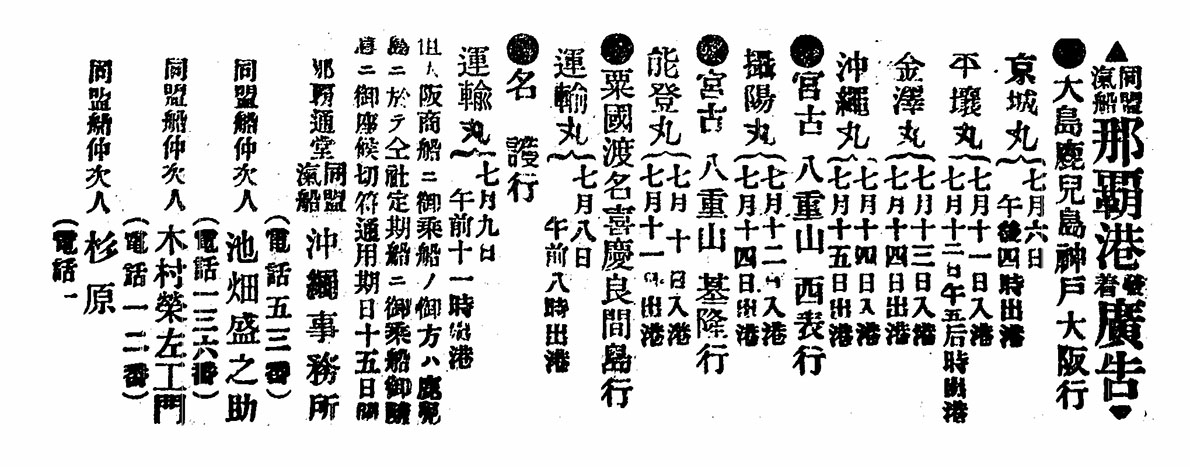 ▲同盟汽船那覇港發着廣告▼
●大島鹿兒島神戸大阪行
京城丸 七月六日
午後四時出港
平壤丸 七月十一日入港
七月十二日午后五時出港
金澤丸 七月十三日入港
七月十四日出港
沖繩丸 七月十四日入港
七月十五日出港
●宮古 八重山 西表行
攝陽丸 七月十二日入港
七月十四日出港
●宮古 八重山 基隆行
能登丸 七月十日入港
七月十一日出港
●粟國渡名喜慶良間島行
運輸丸 七月八日
午前八時出港
●名護行
運輸丸 七月九日
午前十一時出港
但大阪商船ニ御乘船ノ御方ハ鹿兒
島ニ於テ仝社定期船ニ御乘船御勝
意ニ御座候切符通用期日十五日間
那覇通堂 同盟汽船 沖繩事務所
(電話五三番)
同盟船仲次人 池畑盛之助
(電話一三六番)
同盟船仲次人 木村榮左工門
(電話一二番)
同盟船仲次人 杉原
(電話一